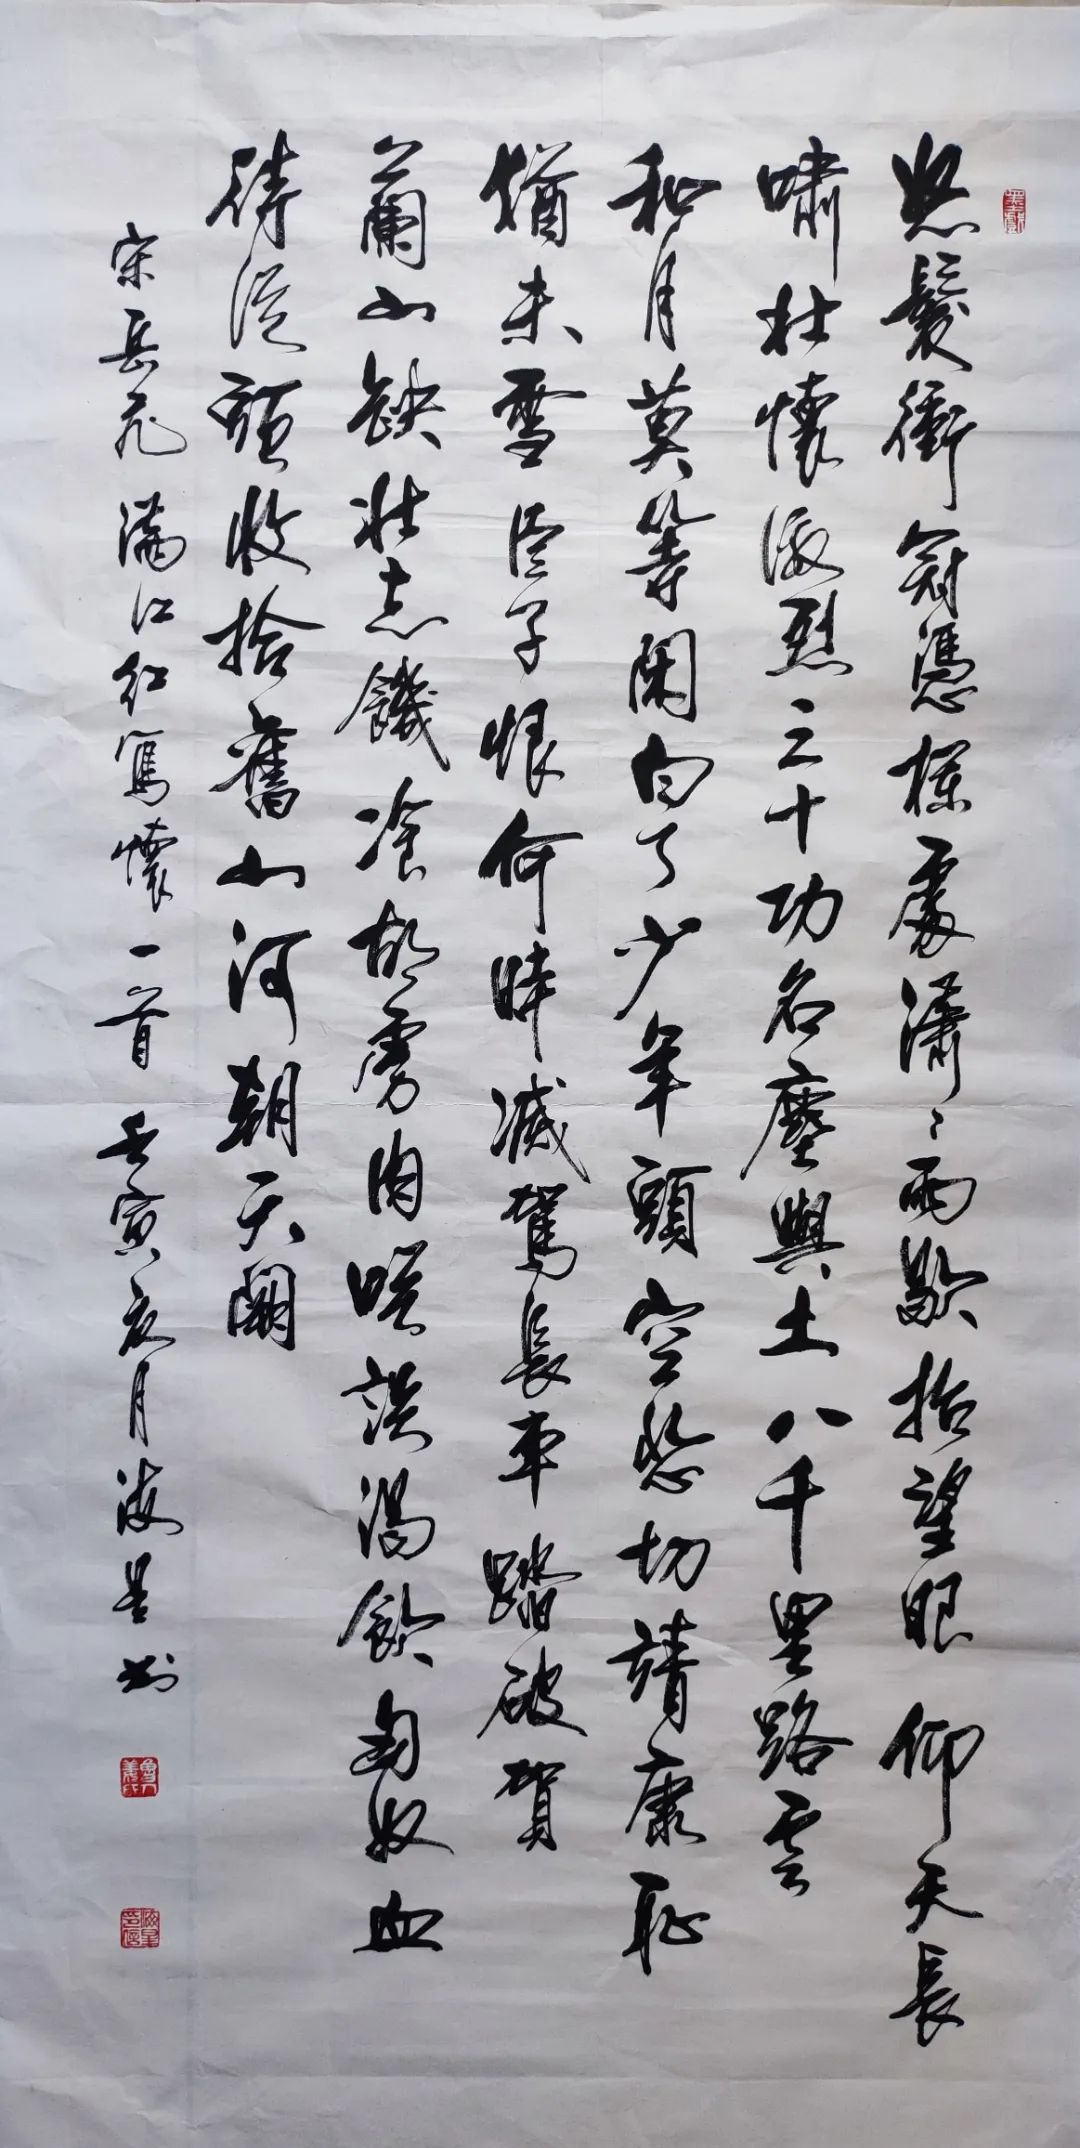 怒髮衝冠憑欄處瀟々雨歇抬望眼仰天長
嘯壯懷激烈三十功名塵與土八千里路雲
和月莫等閑白了少年頭空悲切靖康恥
猶未雪臣子恨何時滅駕長車踏破賀
蘭山缺壯志饑飡胡虜肉笑談渴飲匈奴血
待從頭收拾舊山河朝天闕
宋岳飛滿江紅寫懷一首壬寅夏月海星书